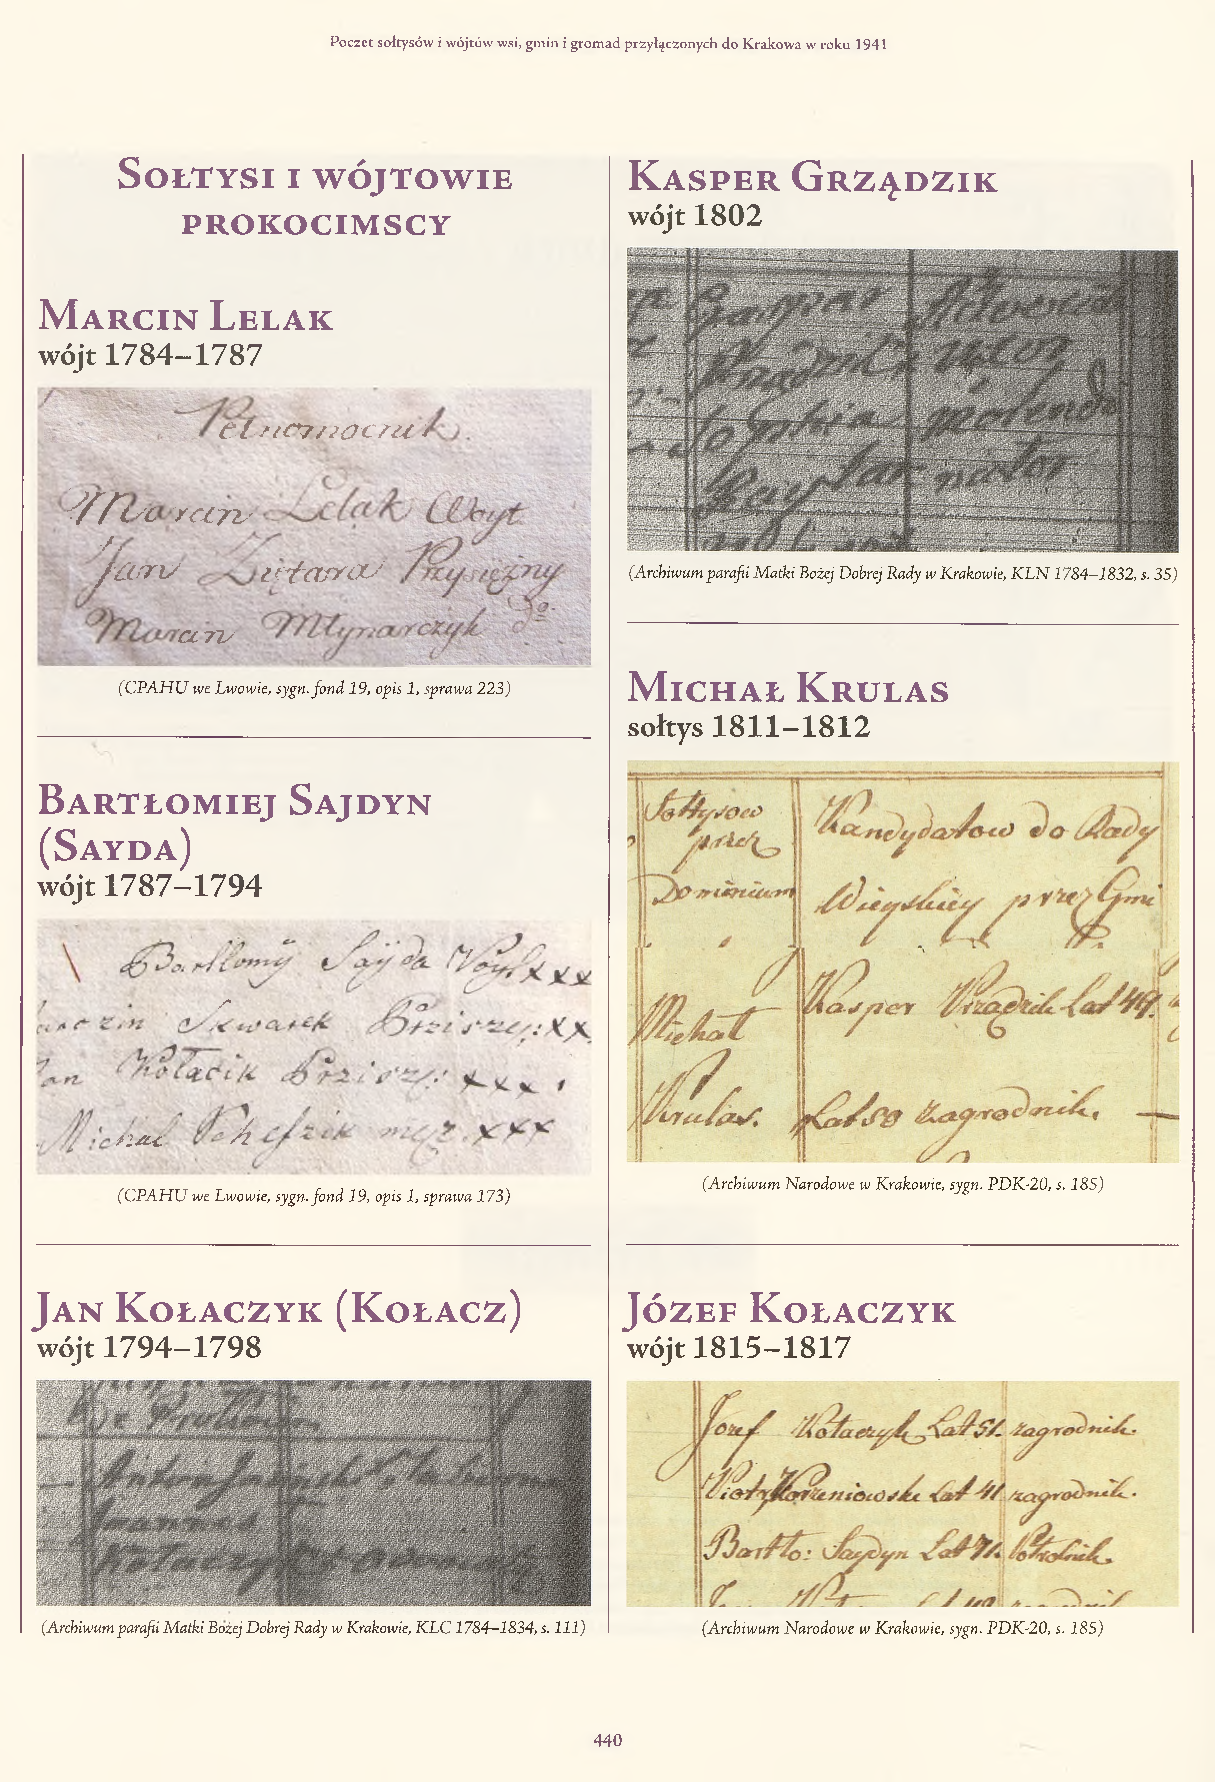 Poczet sołtysów i wójtów wsi, gmin i gromad przyłączonych do Krakowa w roku 1941
Sołtysi i wójtowie
prokocimscy
Marcin Lelak
wójt 1784–1787
Pełnomocnik
Marcin Lelak Woyt
Jan Ziętara Przysiężny
Marcin Młynarczyk do
(CPAHU we Lwowie, sygn. fond 19, opis 1, sprawa 223)
Bartłomiej Sajdyn
(Sayda)
wójt 1787–1794
Bartlomy Sayda Voyt xxx
Skwarek xx
Jan Kołacik xxx
Michal xxx
(CPAHU we Lwowie, sygn. fond 19, opis 1, sprawa 173)
Jan Kołaczyk (Kołacz)
wójt 1794–1798
Joannes
(Archiwum parafii Matki Bożej Dobrej Rady w Krakowie, KLC 1784–1834, s. 111)
Kasper Grządzik
wójt 1802
Gaspar
(Archiwum parafii Matki Bożej Dobrej Rady w Krakowie, KLN 1784–1832, s. 35)
Michał Krulas
sołtys 1811–1812
Sołtysow Kandydatow do Rady
przez
Dominium Wieyskiey przez Gmi
Michał Kasper Lat 49.
Krulas. Lat 50 zagrodnik.
(Archiwum Narodowe w Krakowie, sygn. PDK-20, s. 185)
Józef Kołaczyk
wójt 1815–1817
Jozef Kołaczyk Lat 51. zagrodnik.
Piotr Korzeniowski Lat 41 zagrodnik.
Bartło: Saydyn Lat 71.
(Archiwum Narodowe w Krakowie, sygn. PDK-20, s. 185)
440